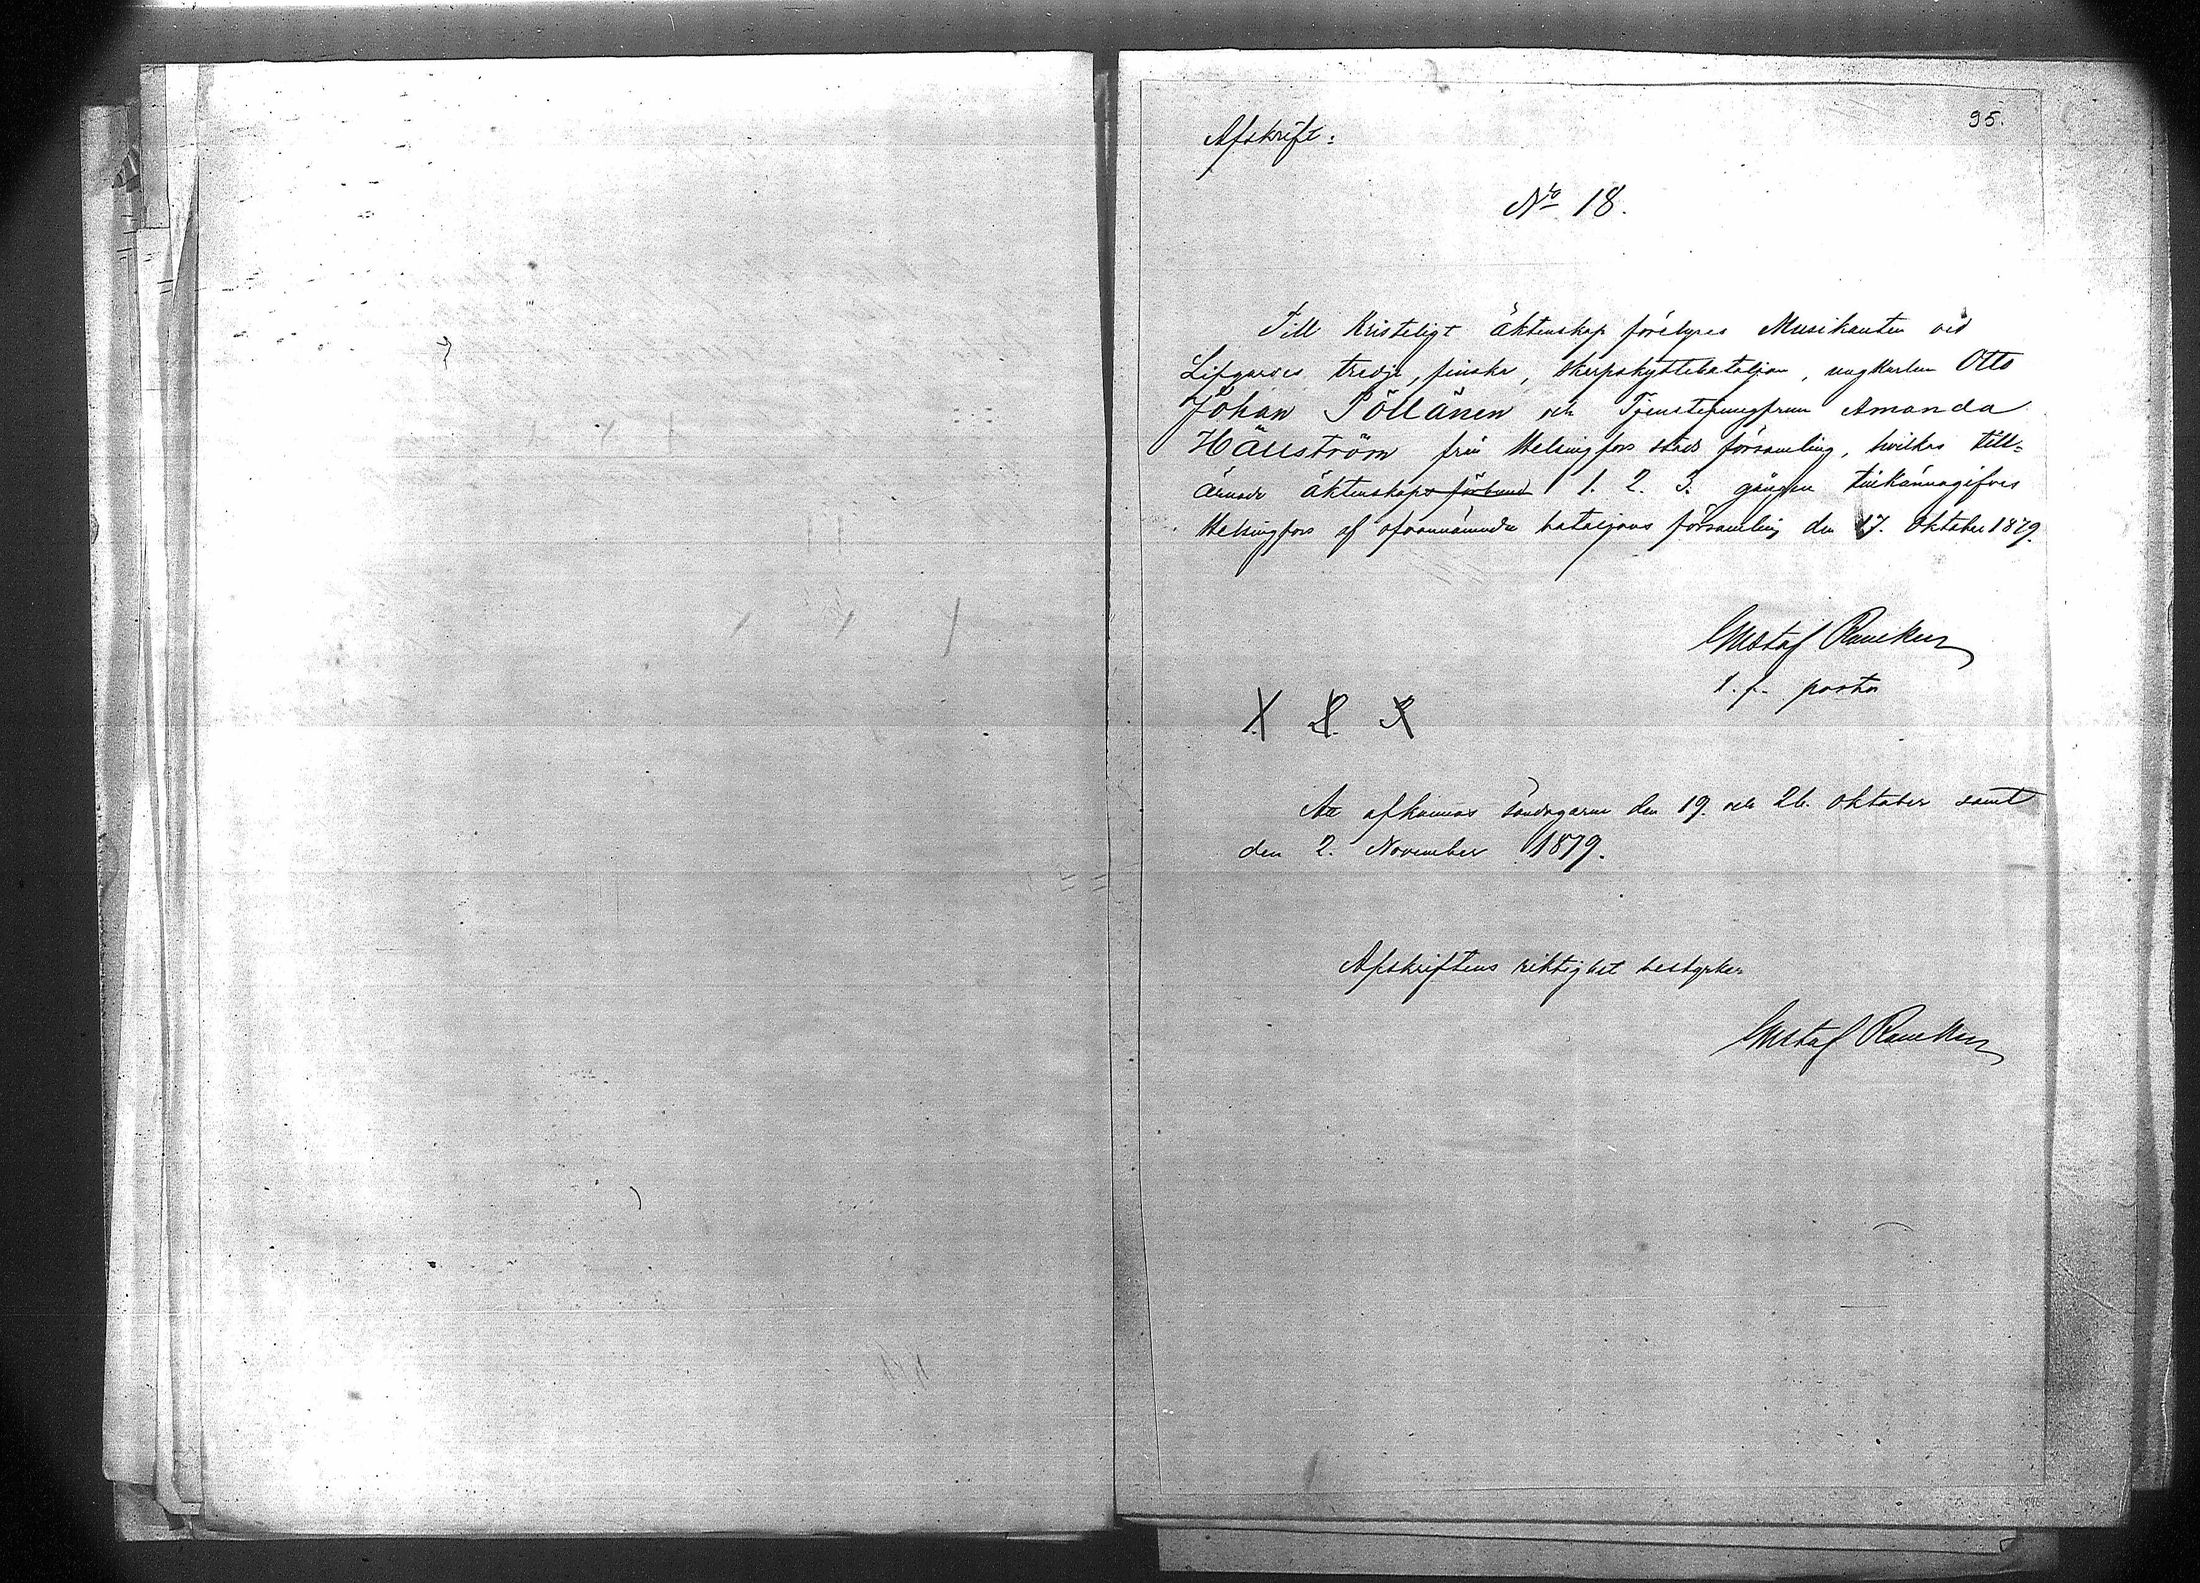 95.
Afskrift:
No 18.
Till Kristeligt äktenskap förelyses Musikanten vid
Lifgardes tredje, finska, skarpskyttebataljon, ungkarlen Otto
Johan Pöllänen och Tjenstejungfrun Amanda
Hällström från Helsingfors stads församling, hvilkas till=
ärnade äktenskaps förbund 1. 2. 3. gången tillkännagifves
Helsingfors af ofvannämnda bataljons församling den 17. Oktober 1879.
Gustaf Rancken
t. f. pastor
1. 2. 3.
Att afkunnas söndagarne den 19. och 26. Oktober samt
den 2. November 1879.
Afskriftens riktighet bestyrker
Gustaf Rancken